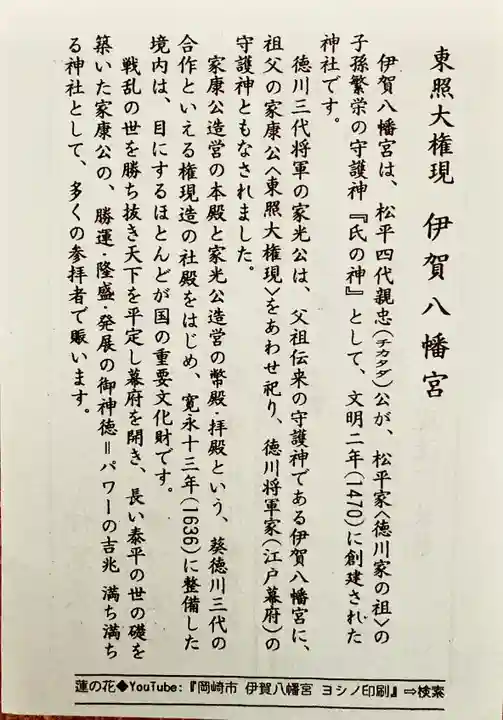 東照大権現　伊賀八幡宮
伊賀八幡宮は、松平四代親忠(チカタダ)公が、松平家〈徳川家の祖〉の
子孫繁栄の守護神『氏の神』として、文明二年(1470)に創建された
神社です。
徳川三代将軍の家光公は、父祖伝来の守護神である伊賀八幡宮に、
祖父の家康公〈東照大権現〉をあわせ祀り、徳川将軍家(江戸幕府)の
守護神ともなされました。
家康公造営の本殿と家光公造営の幣殿・拝殿という、葵徳川三代の
合作といえる権現造の社殿をはじめ、寛永十三年(1636)に整備した
境内は、目にするほとんどが国の重要文化財です。
戦乱の世を勝ち抜き天下を平定し幕府を開き、長い泰平の世の礎を
築いた家康公の、勝運・隆盛・発展の御神徳＝パワーの吉兆 満ち満ち
る神社として、多くの参拝者で賑います。
蓮の花◆YouTube:『岡崎市 伊賀八幡宮 ヨシノ印刷』⇨検索